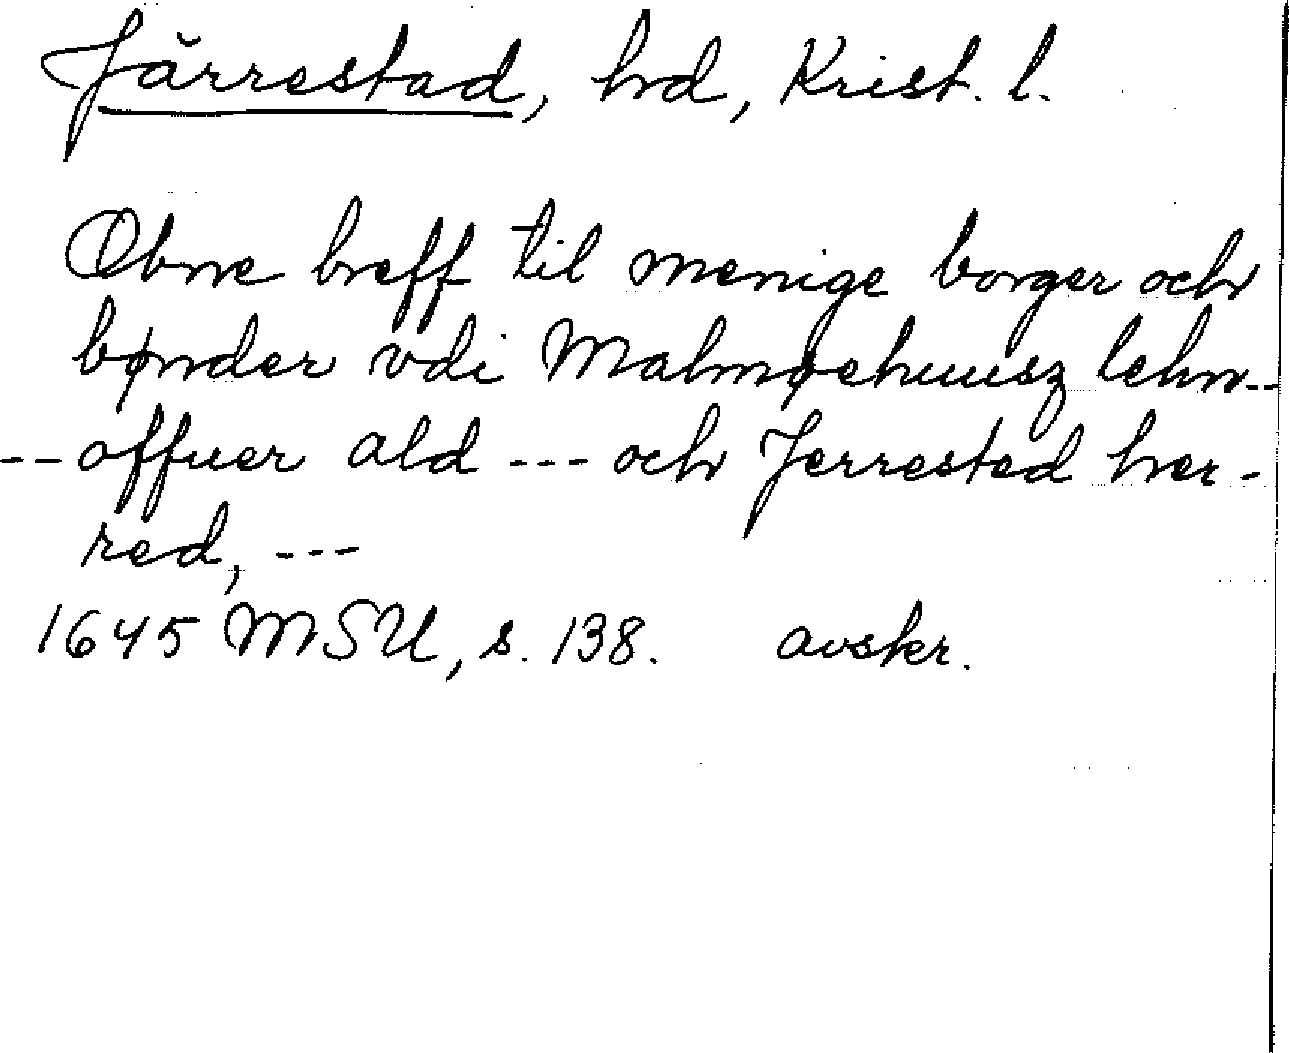 Järrestad, hd, Krist. l.
Obne breff til menige borger och
bønder vdi Malmøehuusz lehn--
--offuer ald --- och Jerrested her-
red, ---
1645 MSU, s. 138. avskr.